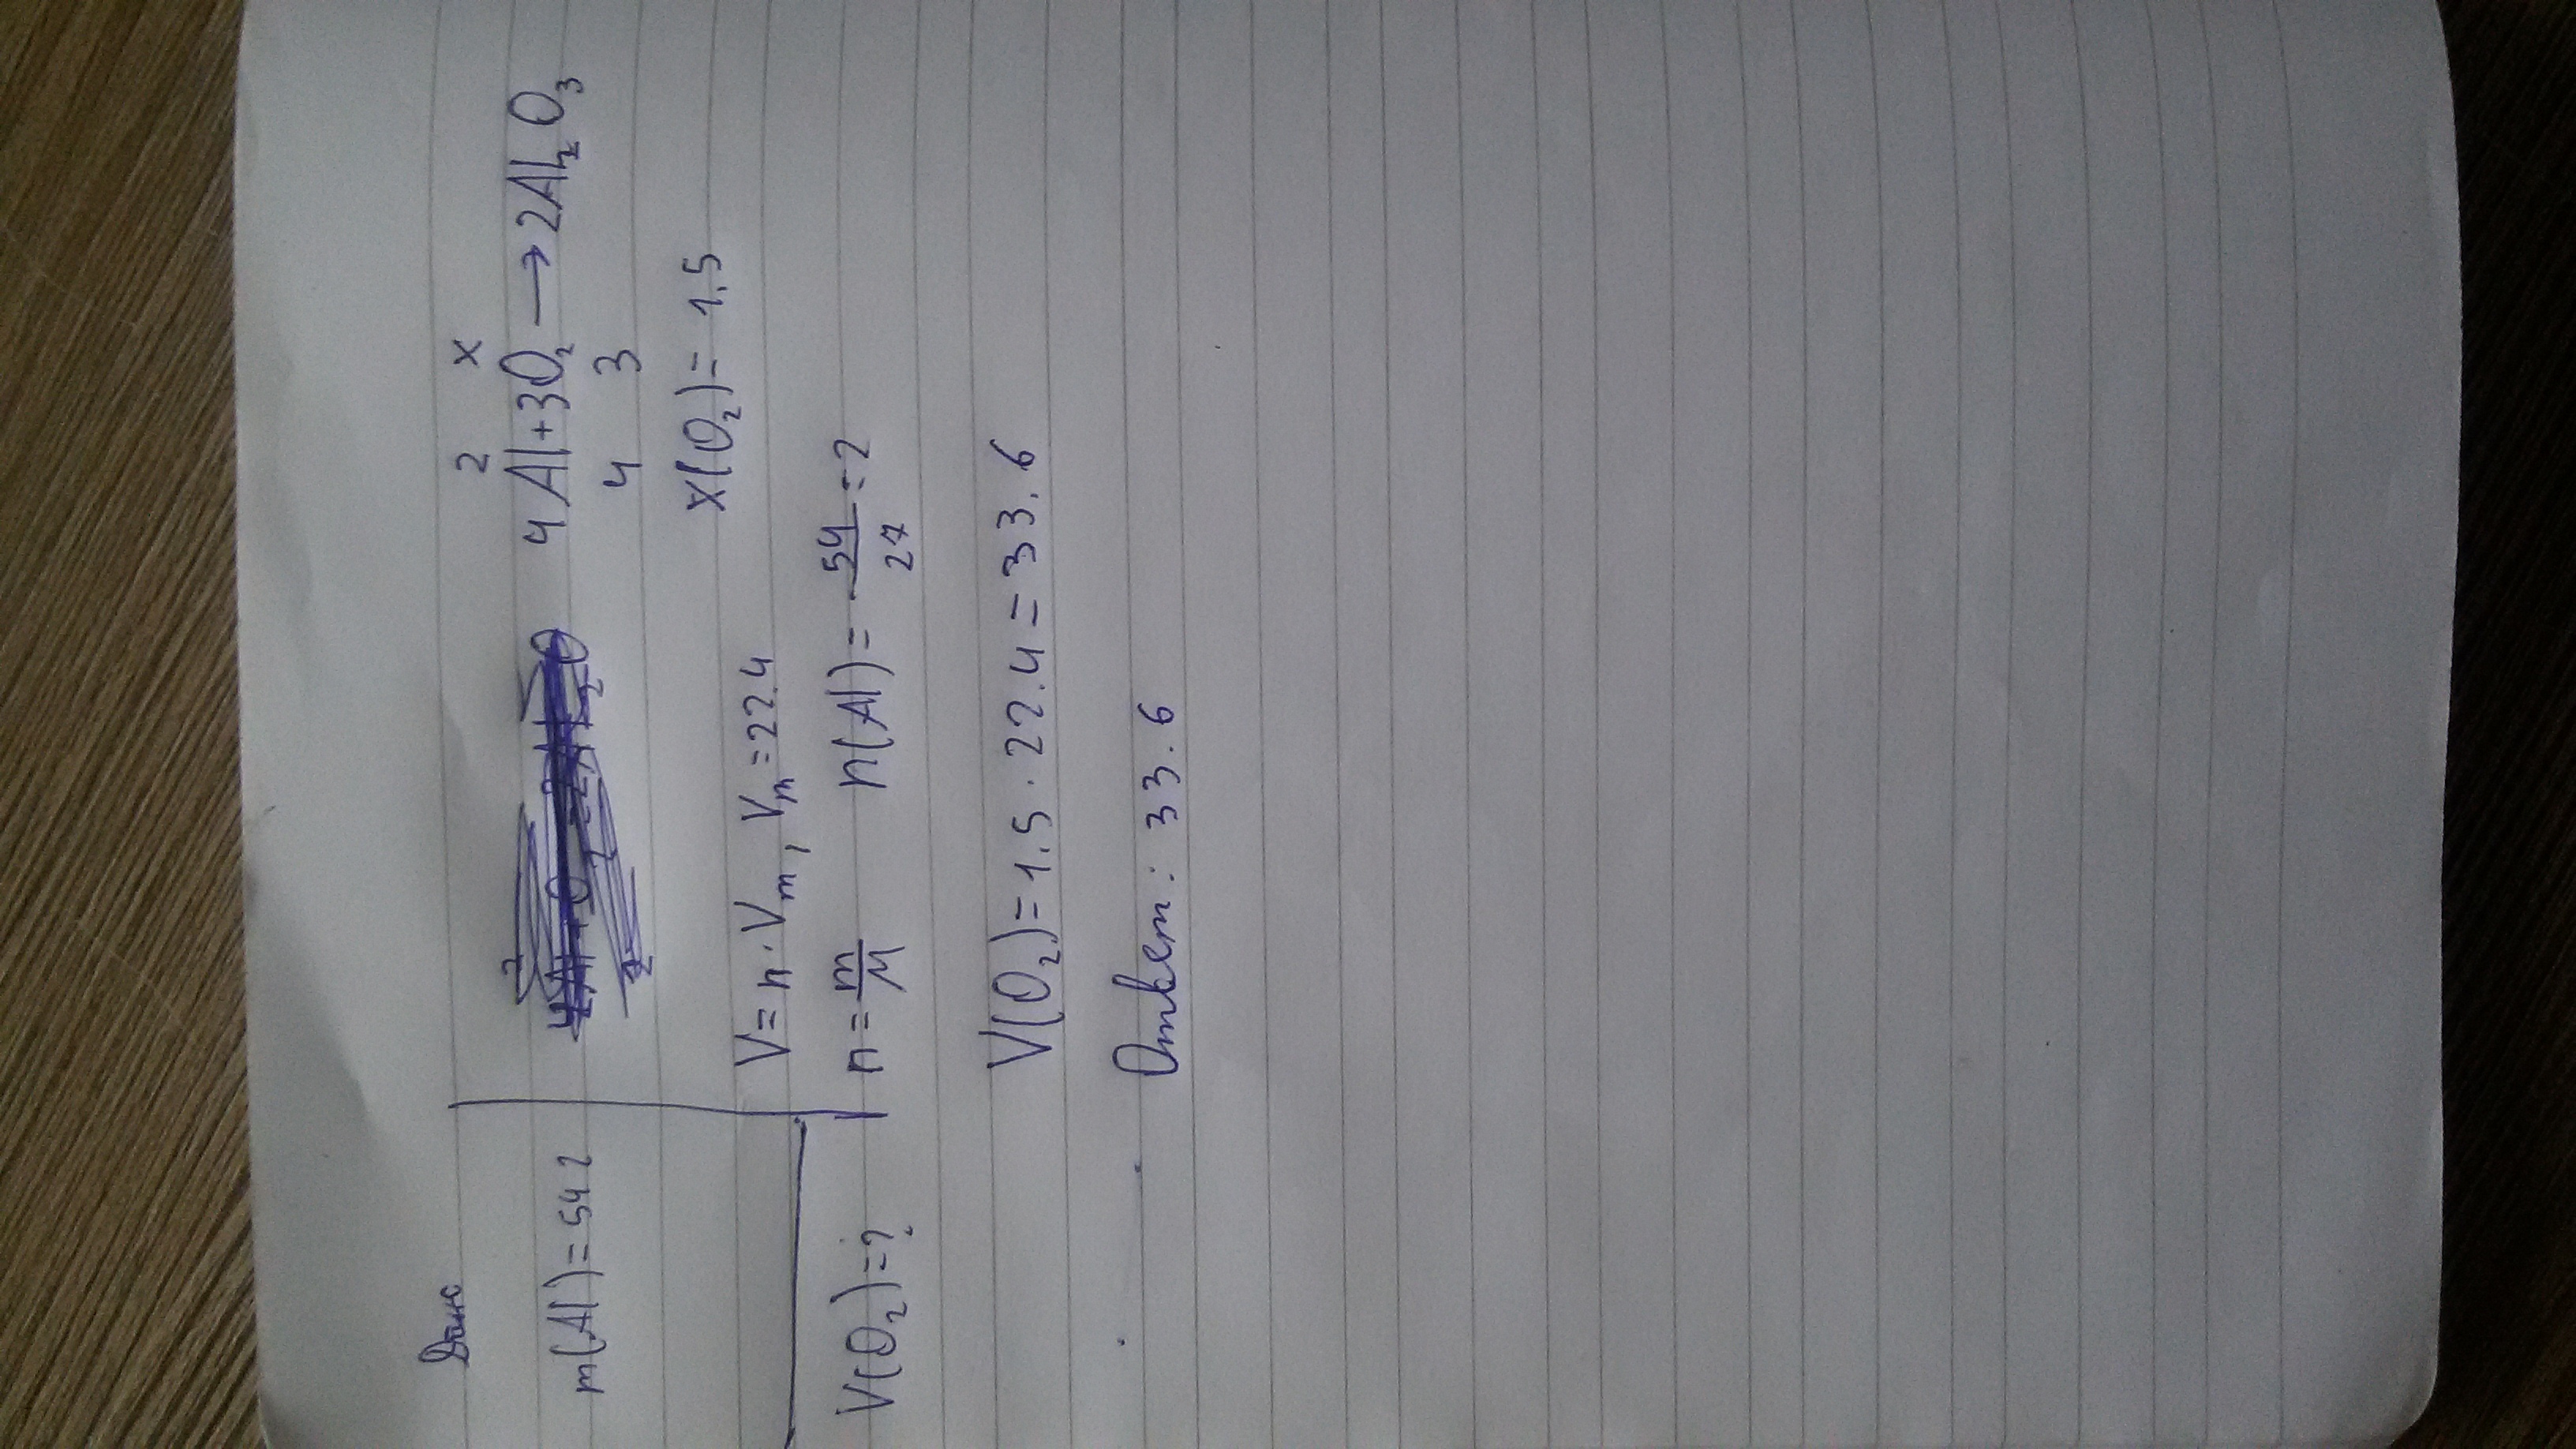 Дано
m(Al)=54г
V(O₂)=?
2 x
4Al+3O₂→2Al₂O₃
4 3
x(O₂)=1.5
V=n·Vₘ, Vₘ=22.4
n=m/M n(Al)=54/27=2
V(O₂)=1.5·22.4=33.6
Ответ: 33.6